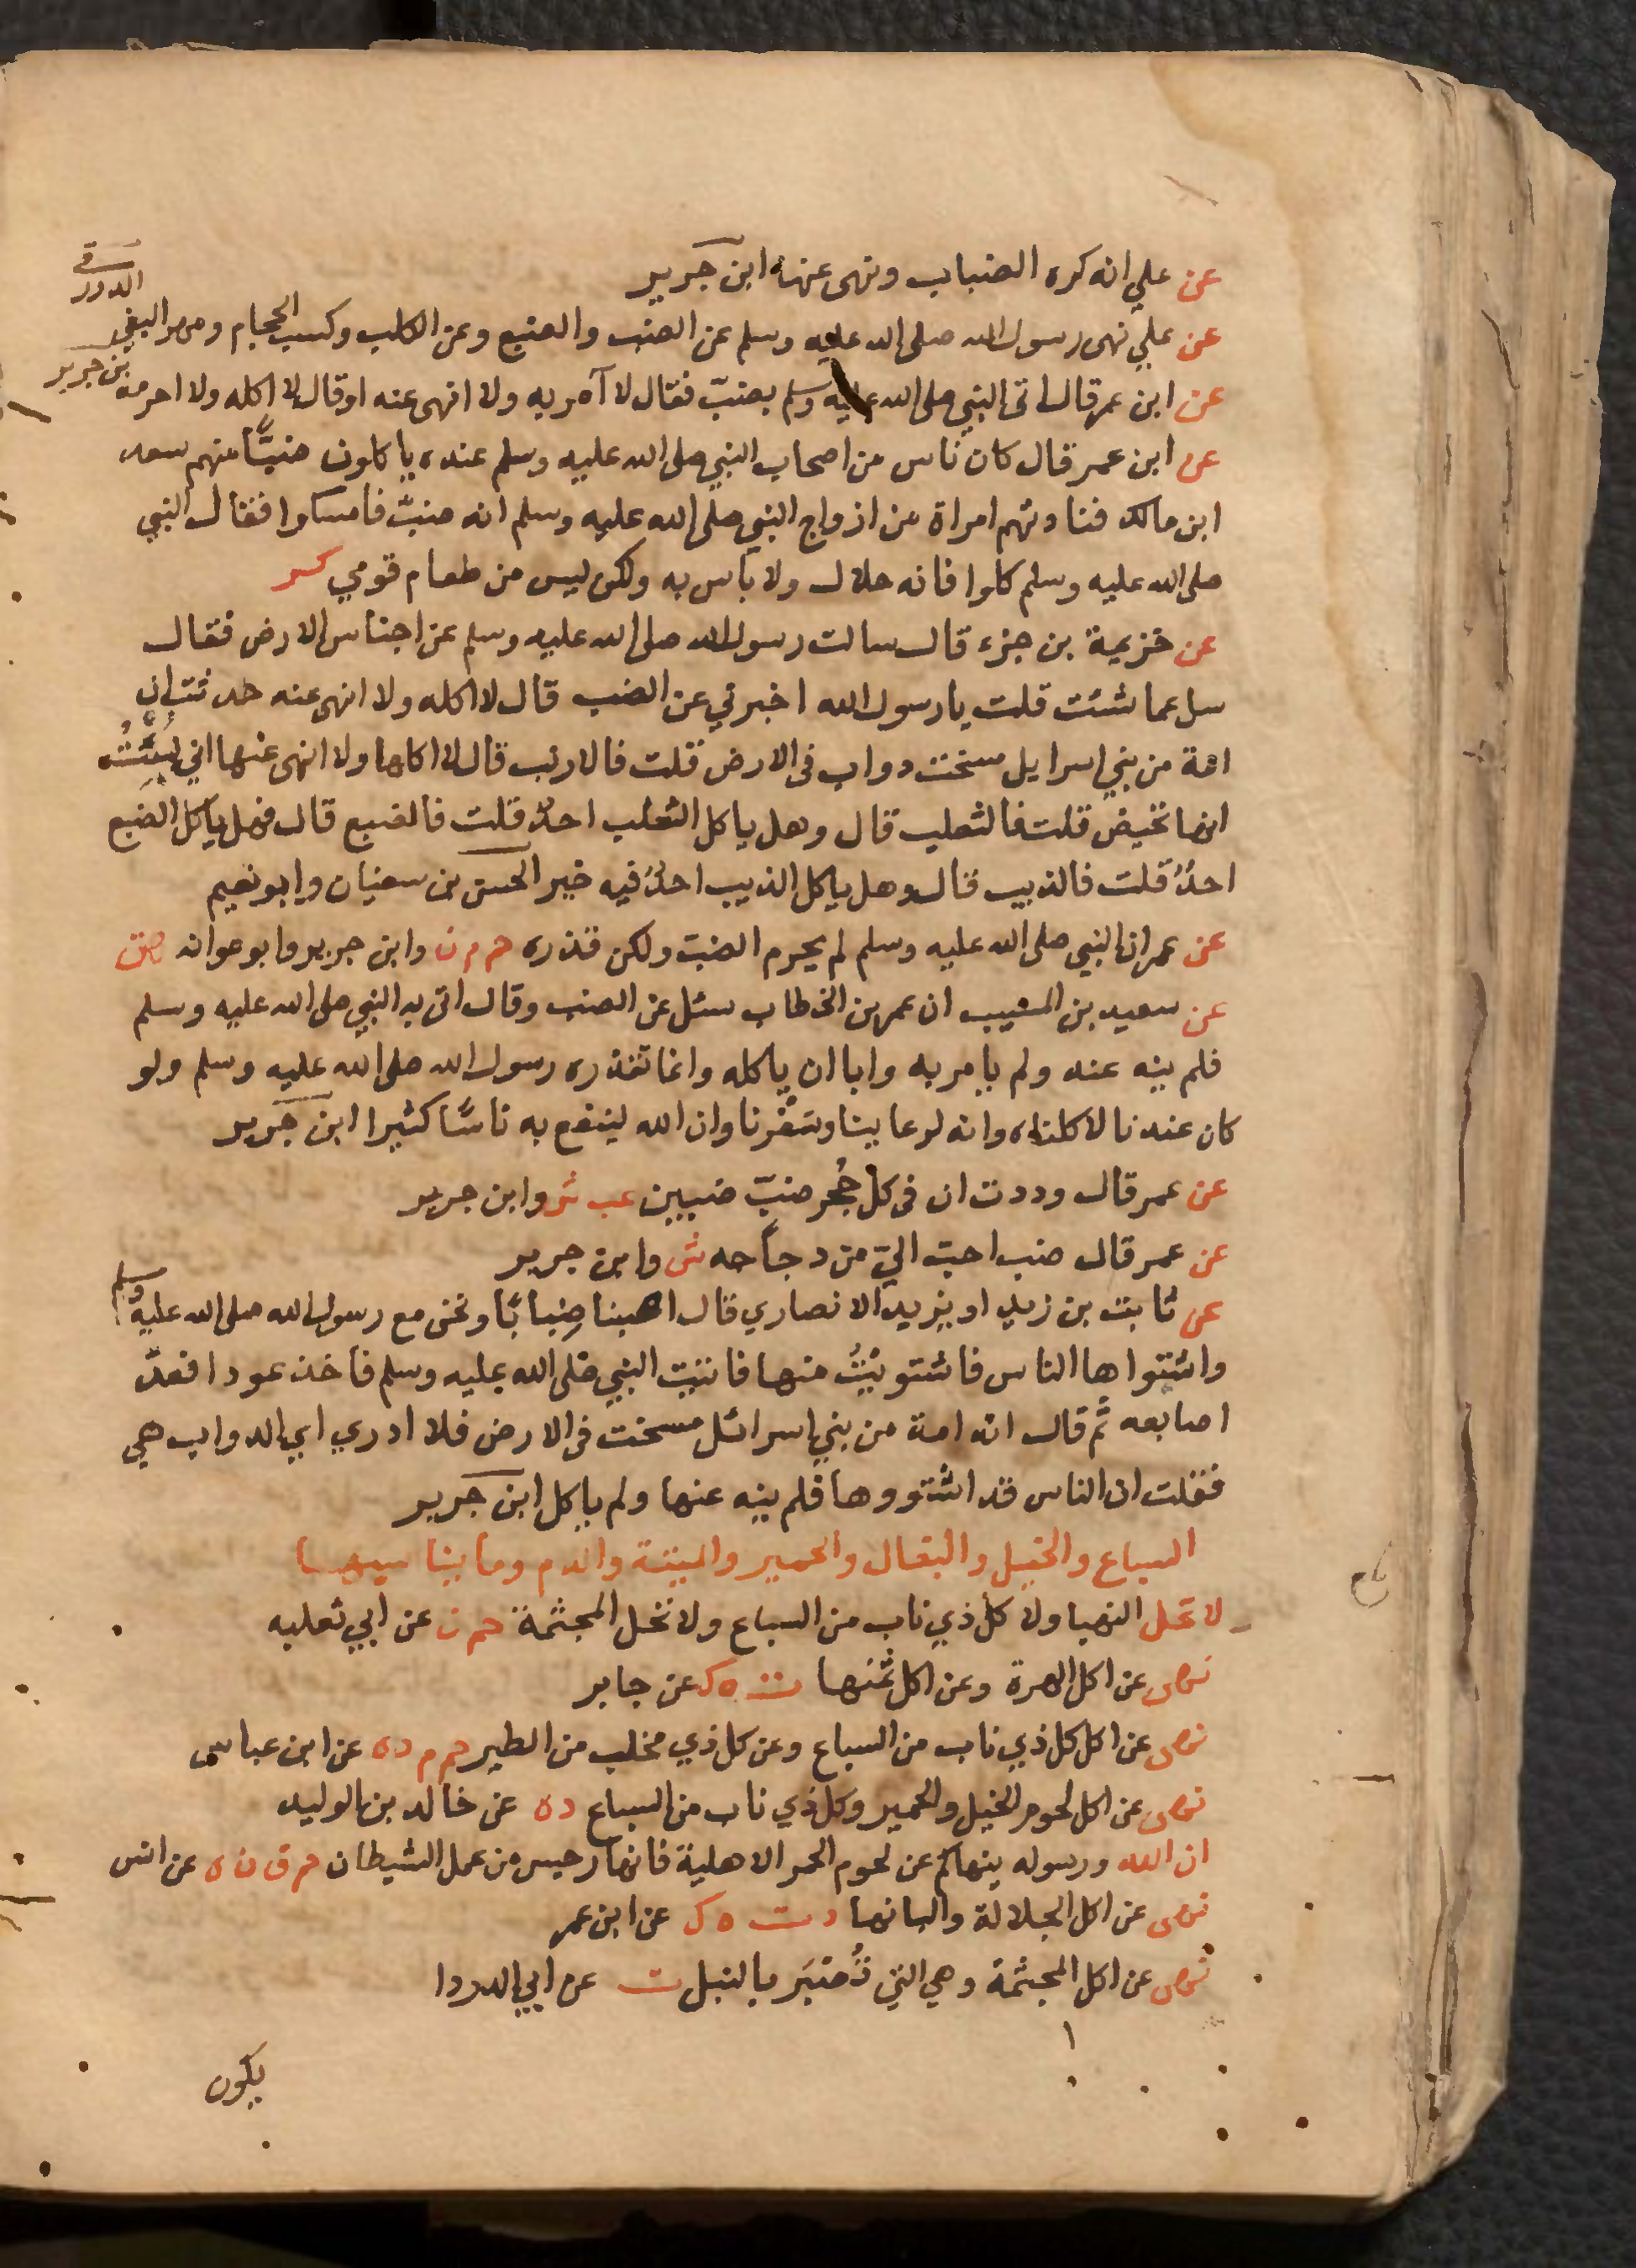 عن علي انه كره الضباب ونهى عنها ابن جرير
عن علي نهى رسول الله صلى الله عليه وسلم عن الضب والضبع وعن الكلب وكسب الحجام ومهر البغي الدورقي
عن ابن عمر قال اتى النبي صلى الله عليه وسلم بضبّ فقال لا آمر به ولا انهى عنه او قال لا اكله ولا احرمه بن جرير
عن ابن عمر قال كان ناس من اصحاب النبي صلى الله عليه وسلم عنده ياكلون ضبًّا منهم سعد
ابن مالك فنادتهم امراة من ازواج النبي صلى الله عليه وسلم انه ضبّ فامسكوا فقال النبي
صلى الله عليه وسلم كلوا فانه حلال ولا باس به ولكن ليس من طعام قومي كر
عن خزيمة بن جزء قال سالت رسول الله صلى الله عليه وسلم عن اجناس الارض فقال
سل عما شئت قلت يا رسول الله اخبرني عن الضب قال لا اكله ولا انهى عنه حدثت ان
امة من بني اسرايل مسخت دواب في الارض قلت فالارنب قال لا اكلها ولا انهى عنها اني نُبِّئتُ
انها تحيض قلت فالثعلب قال وهل ياكل الثعلب احدٌ قلت فالضبع قال فهل ياكل الضبع
احدٌ قلت فالذيب قال وهل ياكل الذيب احدٌ فيه خير الحسن بن سفيان وابو نعيم
عن عمر ان النبي صلى الله عليه وسلم لم يحرم الضب ولكن قذره حم م ن وابن جرير وابو عوانه هق
عن سعيد بن المسيب ان عمر بن الخطاب سئل عن الضب وقال اتى به النبي صلى الله عليه وسلم
فلم ينه عنه ولم يامر به وابا ان ياكله وانما تقذره رسول الله صلى الله عليه وسلم ولو
كان عندنا لاكلناه وانه لرعايينا وسَفْرنا وان الله لينفع به ناسًا كثيرا ابن جرير
عن عمر قال وددت ان في كل جُحر ضبّ ضبين عب ش وابن جرير
عن عمر قال ضب احبّ اليّ من دجاجه ش وابن جرير
عن ثابت بن زيد او يزيد الانصاري قال اصبنا ضِبابًا ونحن مع رسول الله صلى الله عليه وسلم
واشتواها الناس فاشتويْتُ منها فاتيت النبي صلى الله عليه وسلم فاخذ عودا فعدّ
اصابعه ثم قال انه امة من بني اسرائل مسخت في الارض فلا ادري اي الدواب هي
فقلت ان الناس قد اشتووها فلم ينه عنها ولم ياكل ابن جرير
السباع والخيل والبغال والحمير والميتة والدم وما يناسبها
لا تحل النهبا ولا كل ذي ناب من السباع ولا تحل المجثمة حم ن عن ابي ثعلبه
نهى عن اكل الهرة وعن اكل ثمنها ت ه ك عن جابر
نهى عن اكل كل ذي ناب من السباع وعن كل ذي مخلب من الطير حم م د ه عن ابن عباس
نهى عن اكل لحوم الخيل والحمير وكل ذي ناب من السباع د ه عن خالد بن الوليد
ان الله ورسوله ينهاكم عن لحوم الحمر الاهلية فانها رجس من عمل الشيطان حم ق ن ه عن انس
نهى عن اكل الجلالة والبانها د ت ه ك عن ابن عمر
نهى عن اكل المجثمة وهي التي تُصْبَر بالنبل ت عن ابي الدردا
يكون